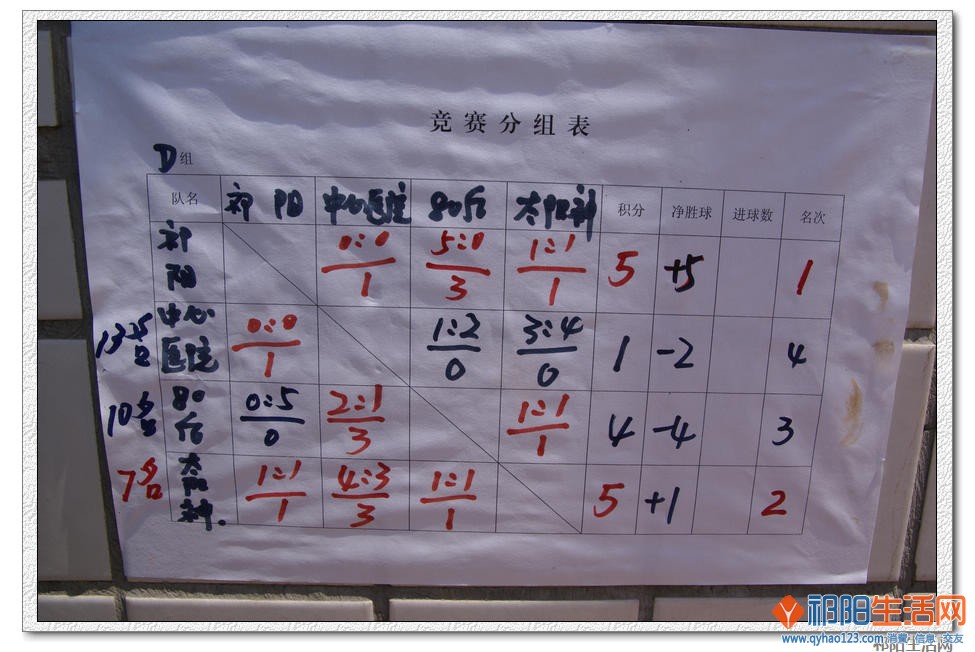 竞赛分组表
D组
队名 祁阳 中心医院 80后 太阳神 积分 净胜球 进球数 名次
祁阳 0:0 1 5:0 3 1:1 1 5 +5 1
13名 中心医院 0:0 1 1:2 0 3:4 0 1 -2 4
10名 80后 0:5 0 2:1 3 1:1 1 4 -4 3
7名 太阳神. 1:1 1 4:3 3 1:1 1 5 +1 2
祁阳生活网
www.qyhao123.com 消费 信息 交友
祁阳生活网